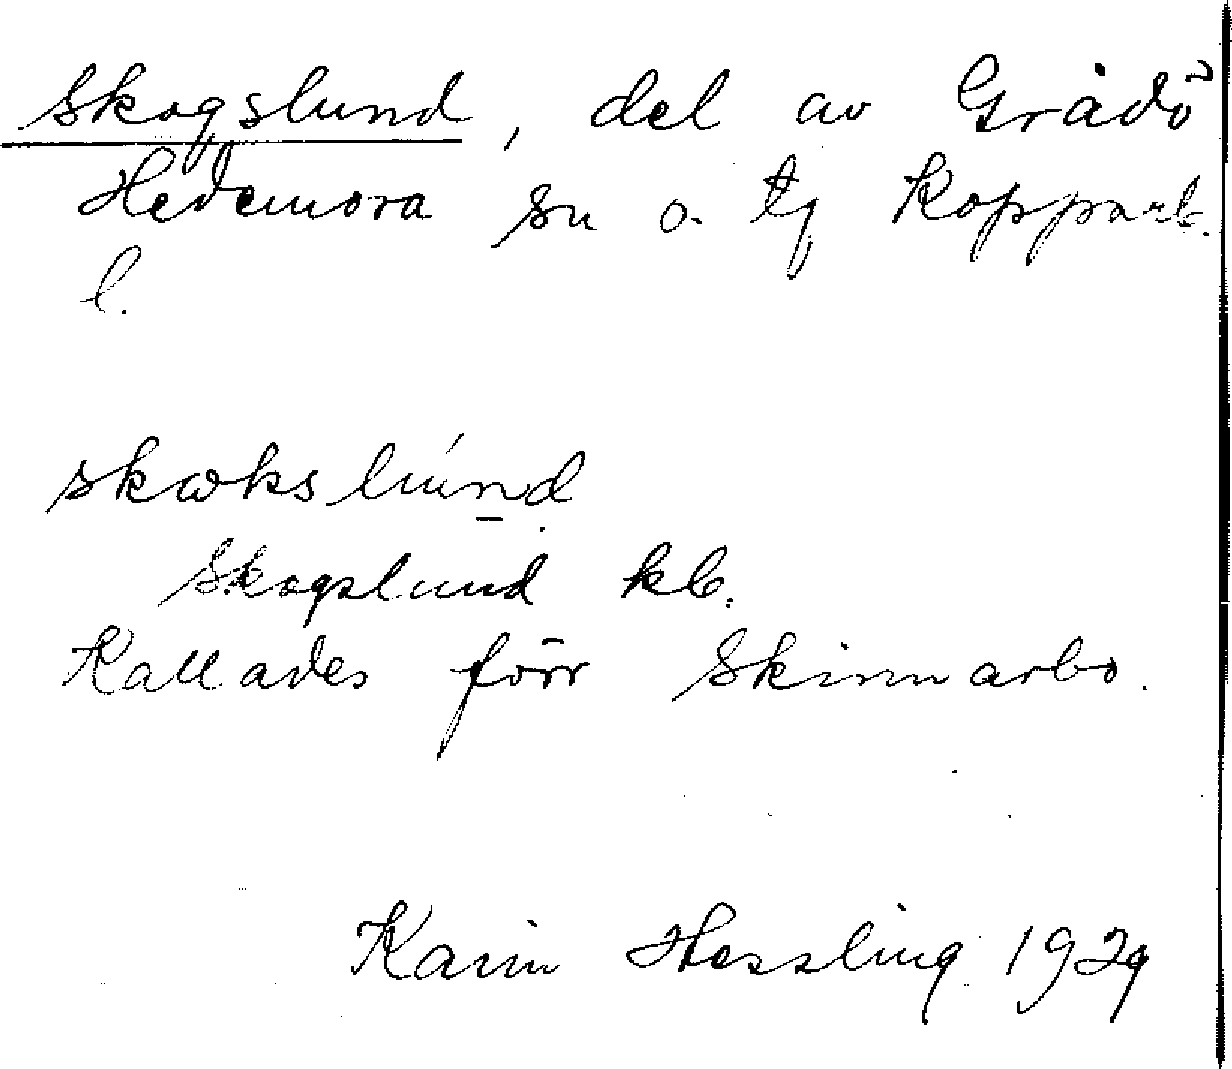 Skogslund, del av Grådö
Hedemora sn o. tg Kopparb.
l.
skωkslúnd
Skogslund kb.
Kallades förr Skinnarbo.
Karin Hessling 1929